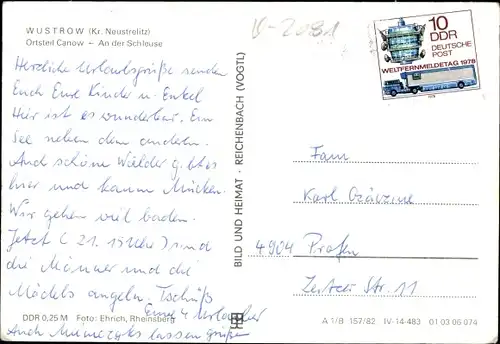 WUSTROW (Kr. Neustrelitz)
Ortsteil Canow – An der Schleuse
Herzliche Urlaubsgrüße senden
Euch Eure Kinder u. Enkel
Hier ist es wunderbar. Ein
See neben dem andern.
Auch schöne Wälder gibt es
hier und kaum Mücken.
Wir gehen viel baden.
Jetzt (21.15 Uhr) sind
die Männer und die
Mädels angeln. Tschüß
Eure 4 Urlauber
Auch lassen grüßen
DDR 0,25 M Foto: Ehrich, Rheinsberg
BILD UND HEIMAT · REICHENBACH (VOGTL)
IV-2081
10
DDR
DEUTSCHE
POST
WELTFERNMELDETAG 1978
Fam.
Karl
4904 Profen
Zeitzer Str. 11
A 1/B 157/82 IV-14-483 01 03 06 074